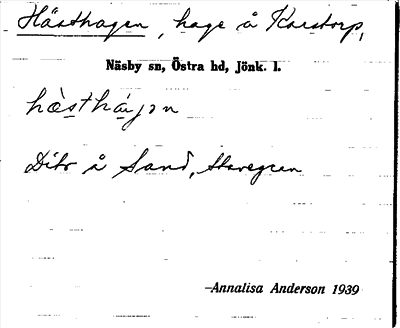 Hästhagen, hage å Karstorp,
Näsby sn, Östra hd, Jönk. l.
hàsthàgən
Dito å Sand,
–Annalisa Anderson 1939